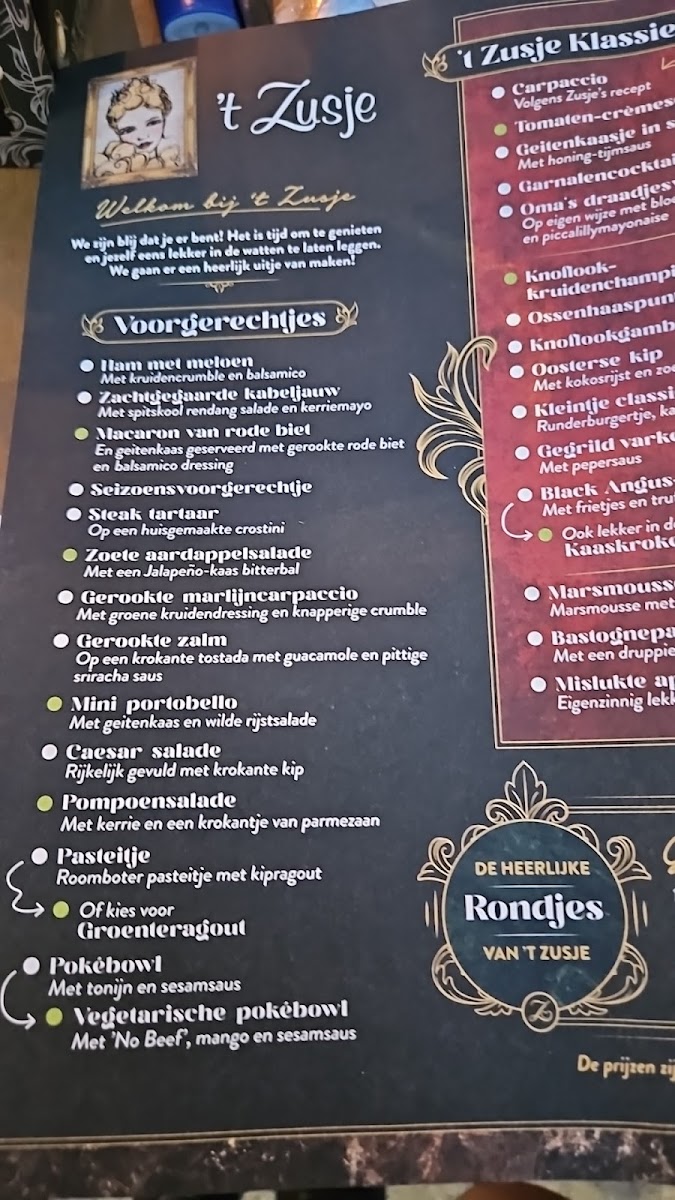 't Zusje
Welkom bij 't Zusje
We zijn blij dat je er bent! Het is tijd om te genieten
en jezelf eens lekker in de watten te laten leggen.
We gaan er een heerlijk uitje van maken!
Voorgerechtjes
Ham met meloen
Met kruidencrumble en balsamico
Zachtgegaarde kabeljauw
Met spitskool rendang salade en kerriemayo
Macaron van rode biet
En geitenkaas geserveerd met gerookte rode biet
en balsamico dressing
Seizoensvoorgerechtje
Steak tartaar
Op een huisgemaakte crostini
Zoete aardappelsalade
Met een Jalapeño-kaas bitterbal
Gerookte marlijncarpaccio
Met groene kruidendressing en knapperige crumble
Gerookte zalm
Op een krokante tostada met guacamole en pittige
sriracha saus
Mini portobello
Met geitenkaas en wilde rijstsalade
Caesar salade
Rijkelijk gevuld met krokante kip
Pompoensalade
Met kerrie en een krokantje van parmezaan
Pasteitje
Roomboter pasteitje met kipragout
Of kies voor
Groenteragout
Pokébowl
Met tonijn en sesamsaus
Vegetarische pokébowl
Met 'No Beef', mango en sesamsaus
't Zusje Klassie
Carpaccio
Volgens Zusje's recept
Tomaten-crèmes
Geitenkaasje in
Met honing-tijmsaus
Garnalencocktai
Oma's draadjesv
Op eigen wijze met blo
en piccalillymayonaise
Knoflook-
kruidenchampi
Ossenhaaspun
Knoflookgamb
Oosterse kip
Met kokosrijst en zo
Kleintje classi
Runderburgertje, ka
Gegrild vark
Met pepersaus
Black Angus-
Met frietjes en tru
Ook lekker in d
Kaaskrok
Marsmouss
Marsmousse met
Bastognepa
Met een druppie
Mislukte ap
Eigenzinnig lekk
DE HEERLIJKE
Rondjes
VAN 'T ZUSJE
Z
De prijzen zij